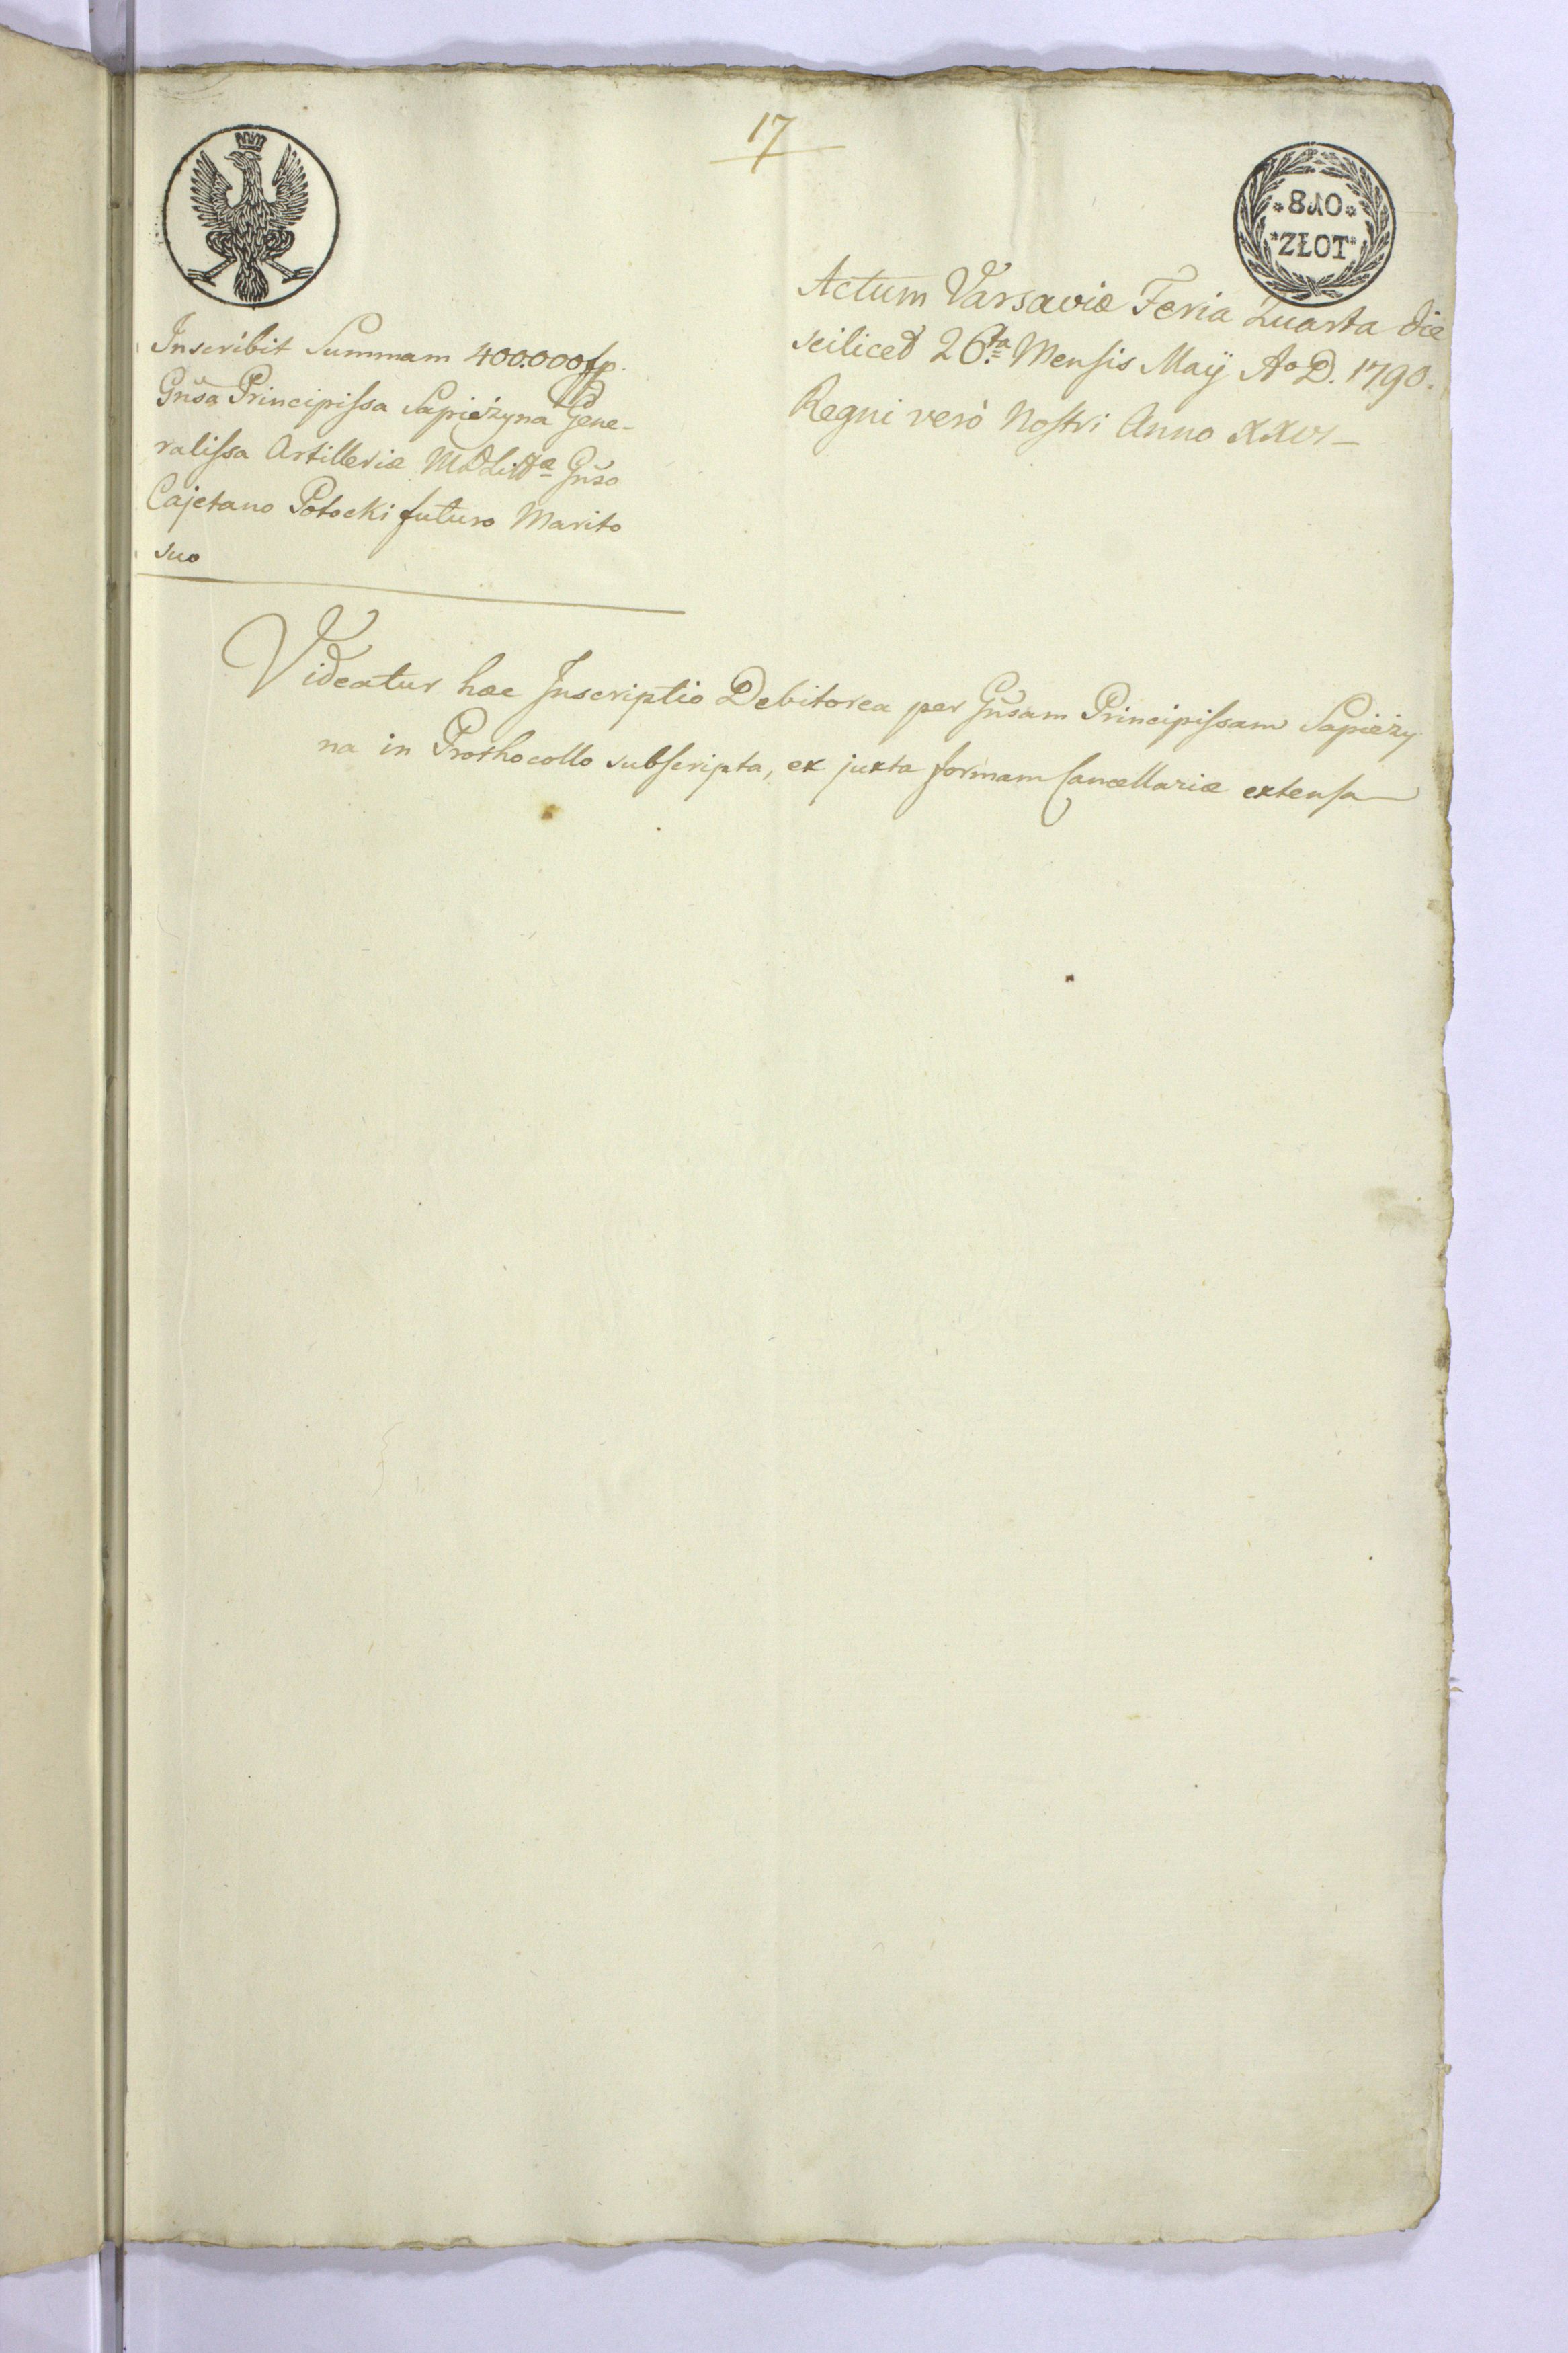 17
*8ΛO*
*ZŁOT*
Actum Varsaviæ Feria Quarta die
scilicet 26ta Mensis Maÿ Ao D. 1790.
Regni verò Nostri Anno XXVI
Inscribit Summam 400.000 fp.
Gñsa Principissa Sapieżyna Gene-
ralissa Artilleriæ MDLittæ Gñso
Cajetano Potocki futuro Marito
suo
Videatur hæc Inscriptio Debitorea per Gñsam Principissam Sapieży
na in Prothocollo subscripta, ex juxta formam Cancellariæ extensa